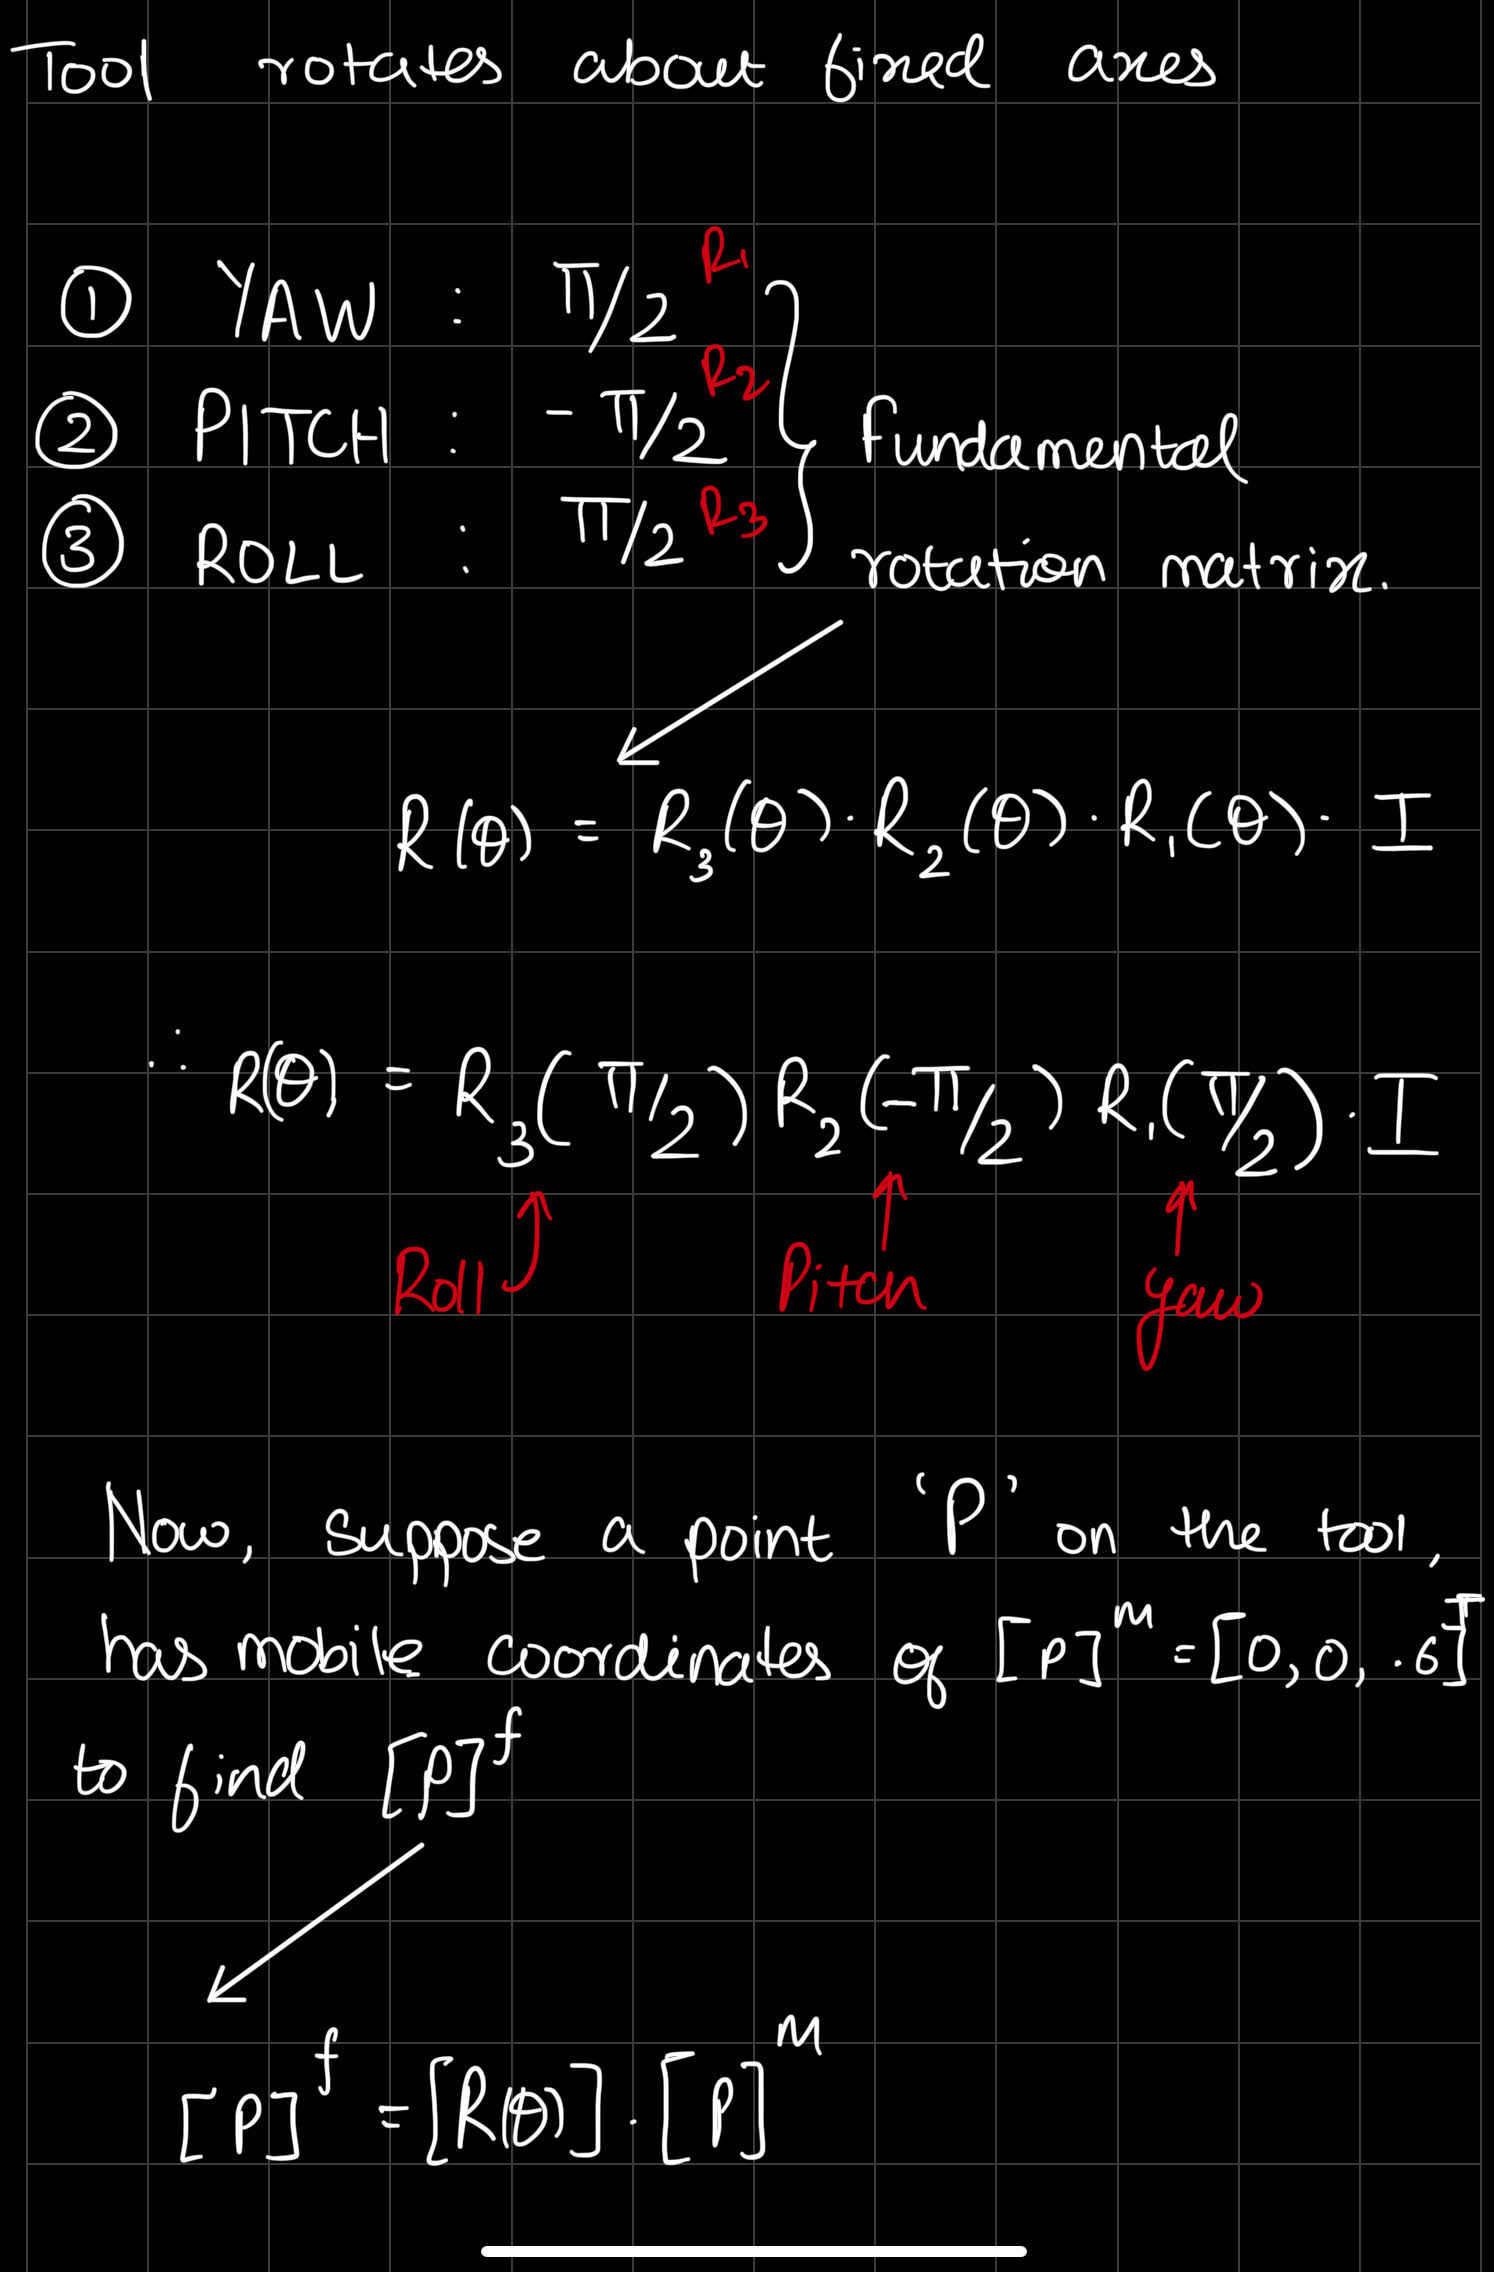 Tool rotates about fixed axes
① YAW : π/2 R1
② PITCH : -π/2 R2
③ ROLL : π/2 R3
fundamental
rotation matrix.
R(θ) = R₃(θ)·R₂(θ)·R₁(θ)·I
∴ R(θ) = R₃(π/2) R₂(-π/2) R₁(π/2)·I
Roll Pitch yaw
Now, suppose a point 'P' on the tool,
has mobile coordinates of [P]ᴹ = [0, 0, .6]ᵀ
to find [P]ᶠ
[P]ᶠ = [R(θ)]·[P]ᴹ